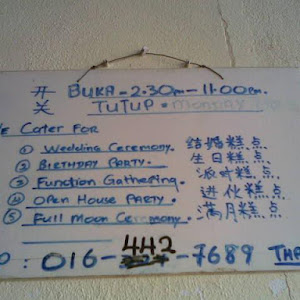 开 BUKA - 2.30pm - 11.00pm.
关 TUTUP. Monday
We Cater FOR
① Wedding Ceremony. 结婚糕点
② BIRTHDAY PARTY. 生日糕点
③ Function Gathering. 派对糕点
④ OPEN HOUSE PARTY. 进伙糕点
⑤ Full Moon Ceremony. 满月糕点
: 016- 442 -7689